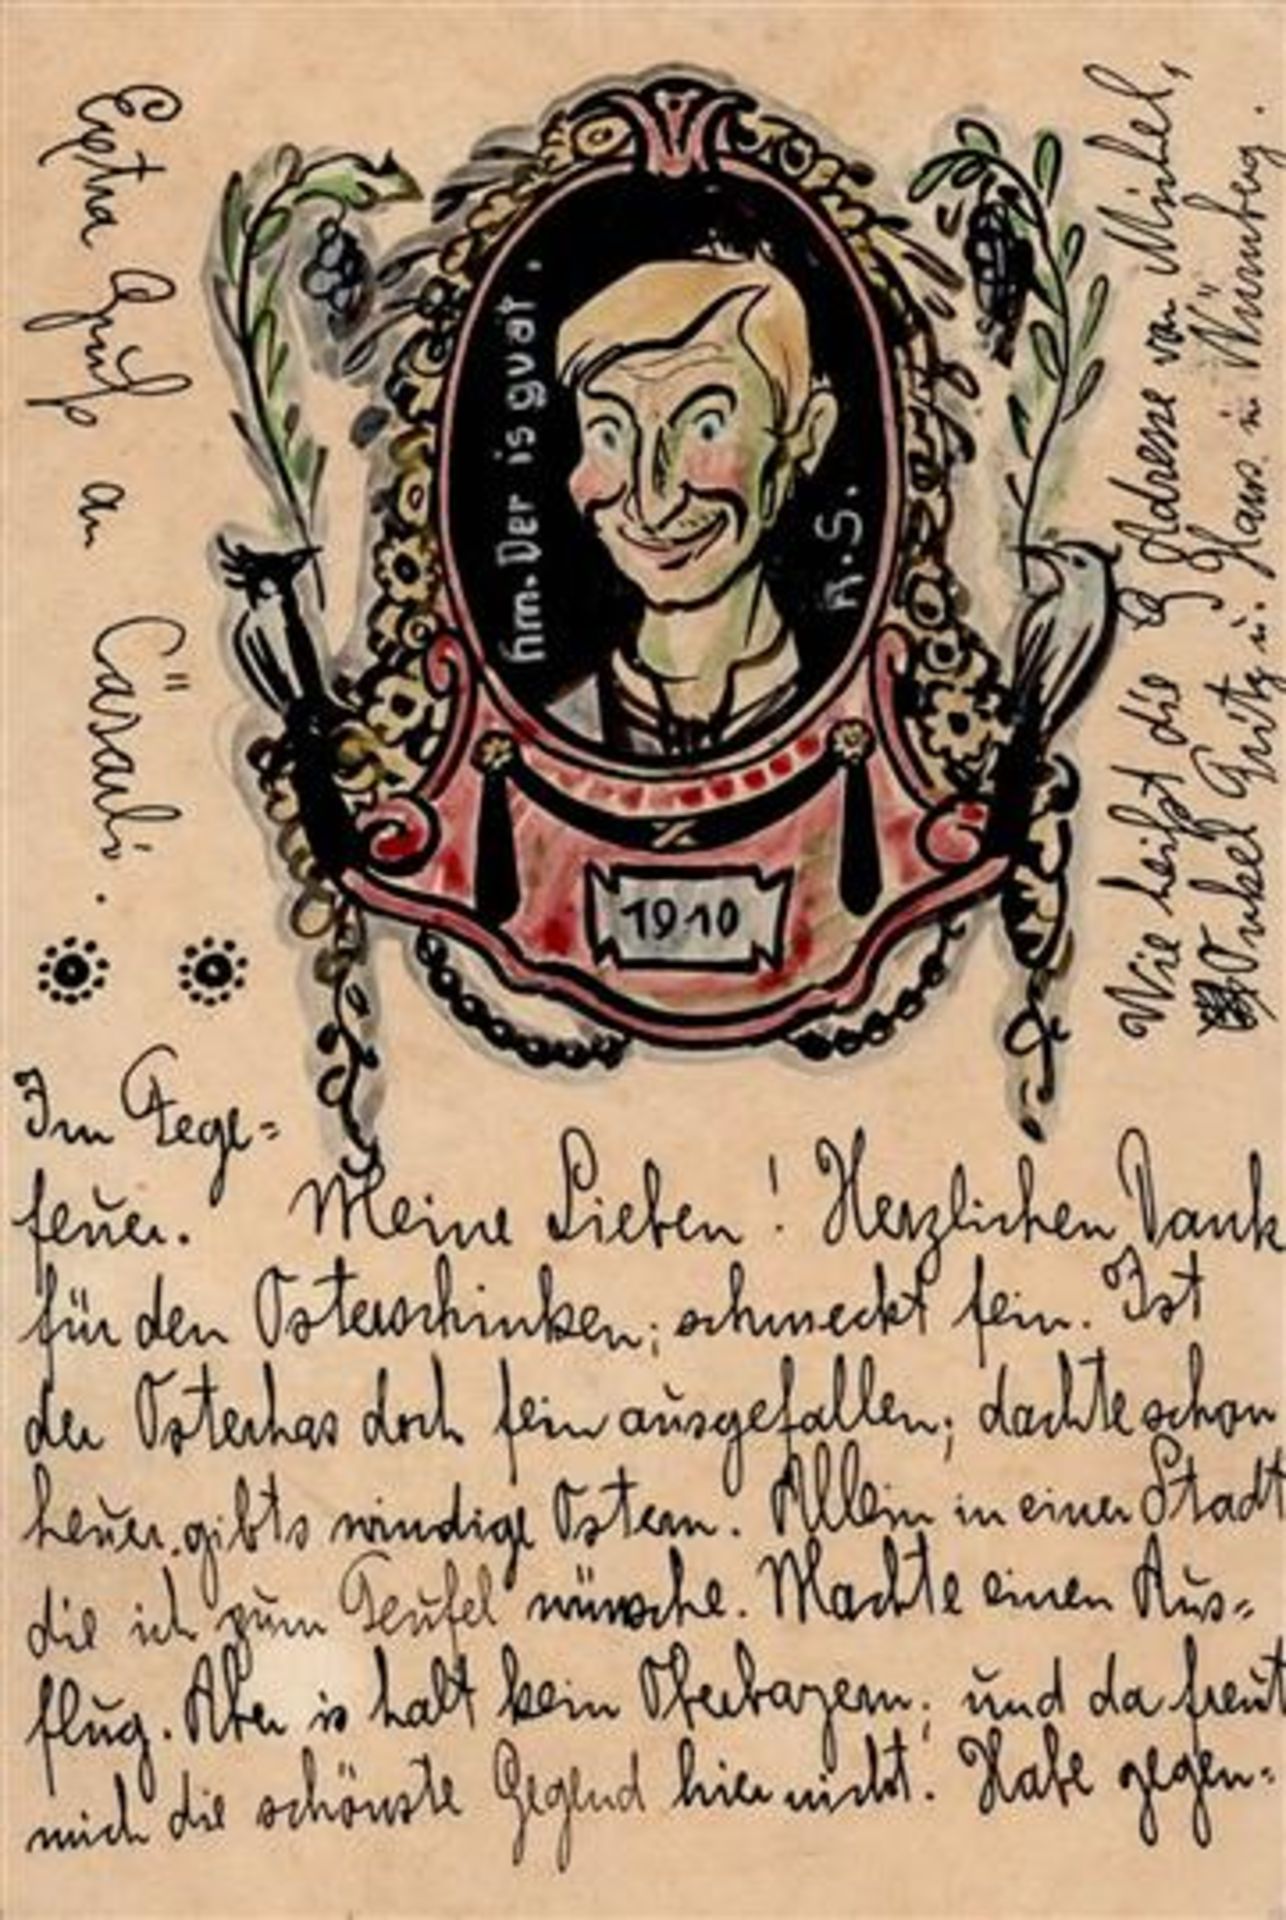 Extra Gruß an Cäsarli.
hm. Der is guat.
A.S.
1910
Wie heißt die Adresse von Michel,
Onkel Fritz u. Hans in Nürnberg.
Im Fege=
feuer. Meine Lieben! Herzlichen Dank
für den Osterschinken; schmeckt fein. Ist
der Osterhas doch fein ausgefallen; dachte schon
heuer gibts windige Ostern. Allein in einer Stadt
die ich zum Teufel wünsche. Machte einen Aus=
flug. Aber is halt kein Oberbayern; und da freut
mich die schönste Gegend hier nicht. Habe gegen=